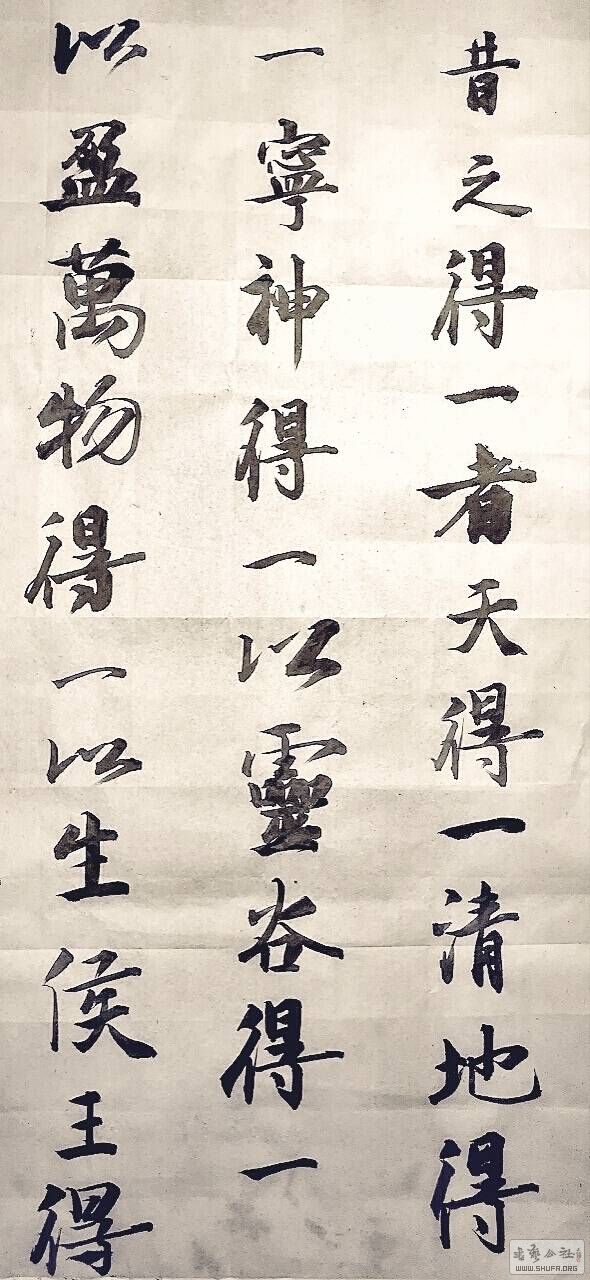 昔之得一者天得一清地得
一寧神得一以靈谷得一
以盈萬物得一以生侯王得
WWW.SHUFA.ORG